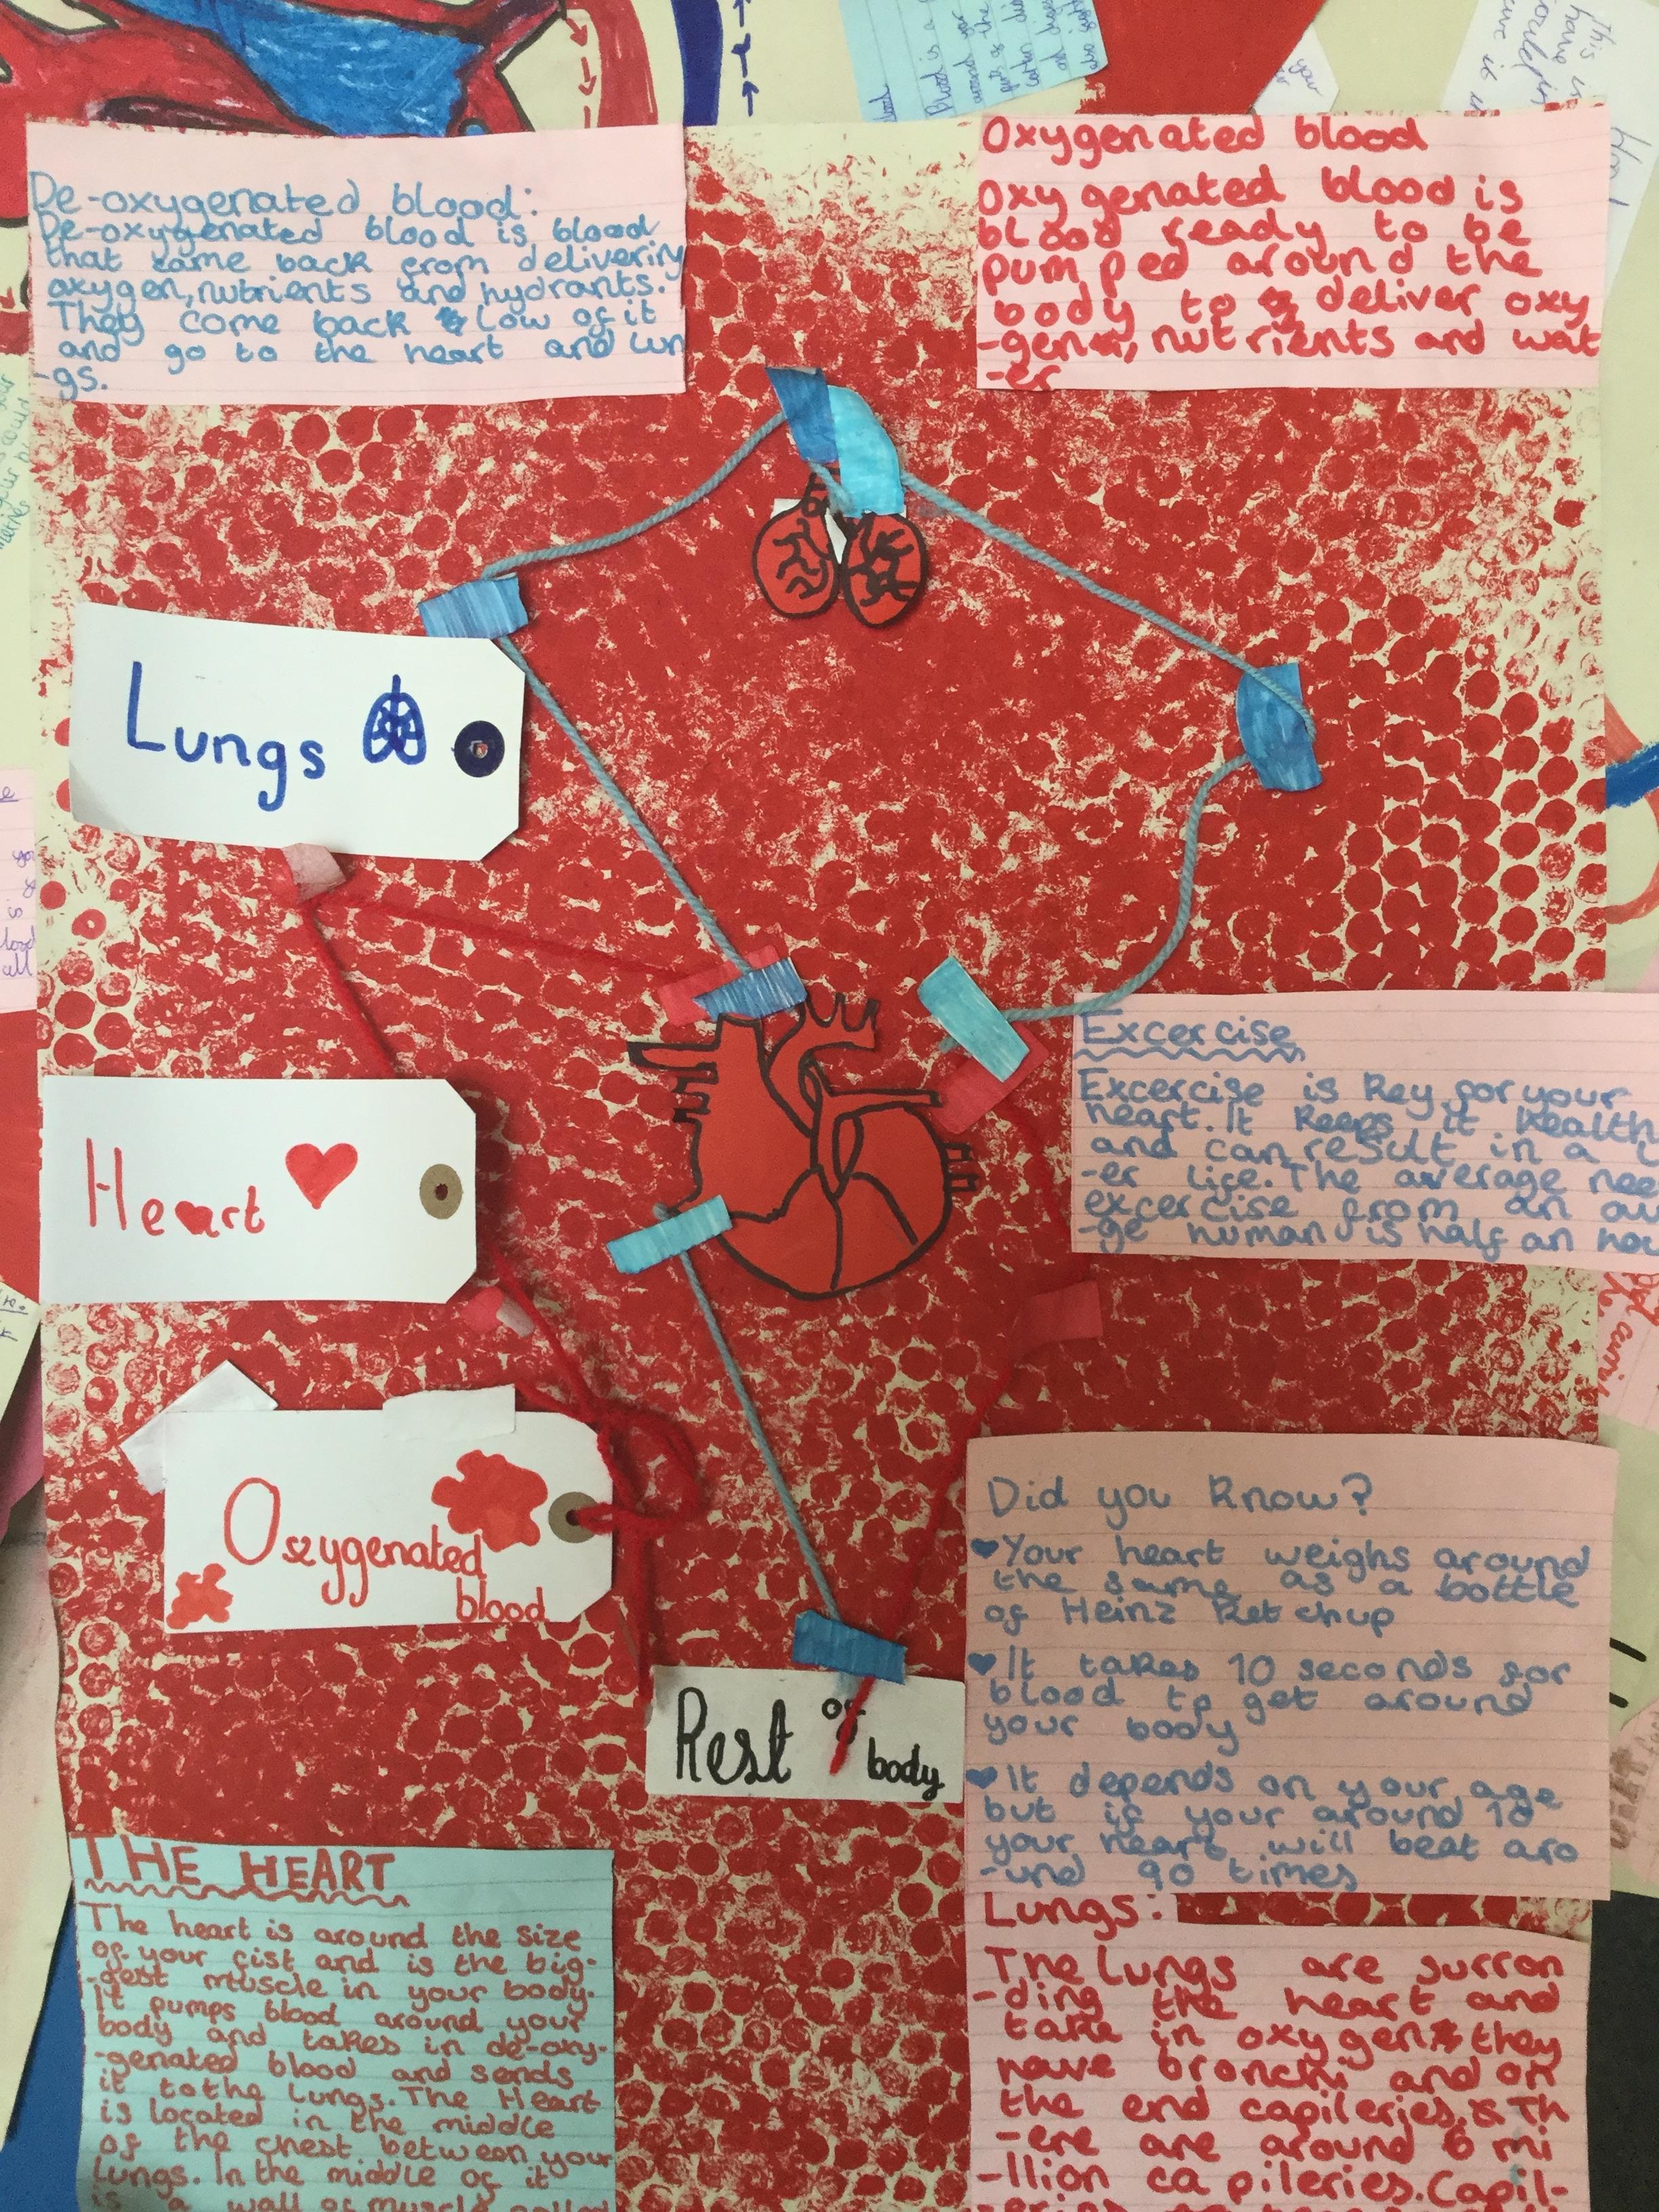 De-oxygenated blood:
De-oxygenated blood is blood
that came back from delivering
oxygen, nutrients and hydrants.
They come back low of it
and go to the heart and lun
-gs.
Oxygenated blood
Oxygenated blood is
blood ready to be
pumped around the
body to deliver oxy
-gen, nutrients and wat
-er
Lungs
Heart
Oxygenated
blood
Rest of
body
Excercise
Excercise is key for your
heart. It keeps it health
and can result in a
-er life. The average nee
excercise from an av
-ge human is half an hou
Did you know?
Your heart weighs around
the same as a bottle
of Heinz Ketchup
It takes 10 seconds for
blood to get around
your body
It depends on your age
but if your around 10
your heart will beat aro
-und 90 times
THE HEART
The heart is around the size
of your fist and is the big-
-gest muscle in your body.
It pumps blood around your
body and takes in de-oxy-
-genated blood and sends
it to the Lungs. The Heart
is located in the middle
of the chest between your
Lungs. In the middle of it
is a wall of muscle called
Lungs:
The lungs are surron
-ding the heart and
take in oxygen they
have bronchi and on
the end capileries. Th
-ere are around 6 mi
-llion capileries. Capil-